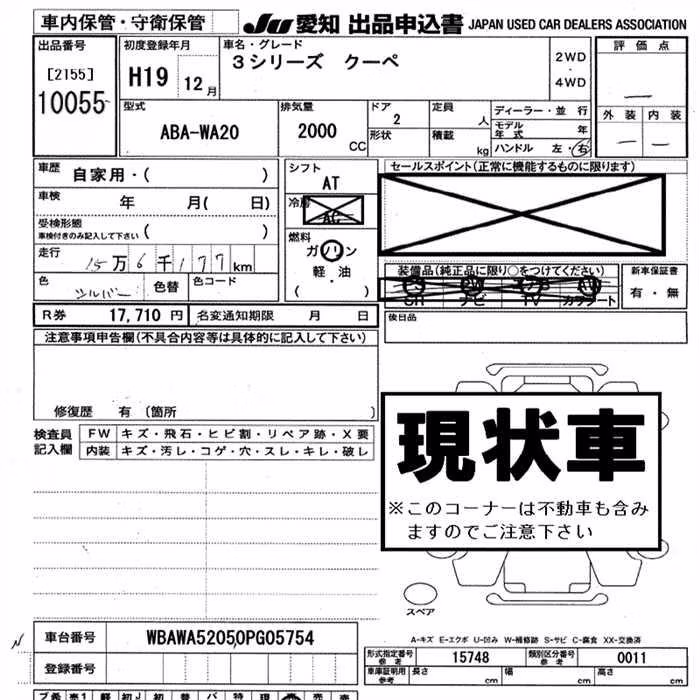 車内保管・守衛保管
JU 愛知 出品申込書 JAPAN USED CAR DEALERS ASSOCIATION
出品番号
[2155]
10055
初度登録年月
H19 12月
車名・グレード
3シリーズ クーペ
2WD
・
4WD
評価点
—
外装 内装
— —
型式
ABA-WA20
排気量
2000 CC
ドア
2
形状
定員
人
積載
kg
ディーラー・並行
モデル年式 年
ハンドル 左・右
車歴
自家用・( )
車検 年 月( 日)
受検形態
車検付きのみ記入して下さい ( )
走行 15万6千177km
色 シルバー 色替 色コード
シフト
AT
冷房
AC
燃料
ガソリン
軽・油
( )
セールスポイント(正常に機能するものに限ります)
装備品(純品品に限り○をつけてください)
SR ナビ TV カワシート
新車保証書
有・無
R券 17,710円 名変通知期限 月 日
後日品
注意事項申告欄(不具合内容等は具体的に記入して下さい)
修復歴 有(箇所 )
検査員記入欄
FW キズ・飛石・ヒビ割・リペア跡・X要
内装 キズ・汚レ・コゲ・穴・スレ・キレ・破レ
現状車
※このコーナーは不動車も含み
ますのでご注意下さい
スペア
A-キズ E-エクボ U-凹み W-補修跡 S-サビ C-腐食 XX-交換済
車台番号 WBAWA52050PG05754
登録番号
形式指定番号 参考 15748 類別区分番号 参考 0011
車庫証明用 参考 長さ cm 幅 cm 高さ cm